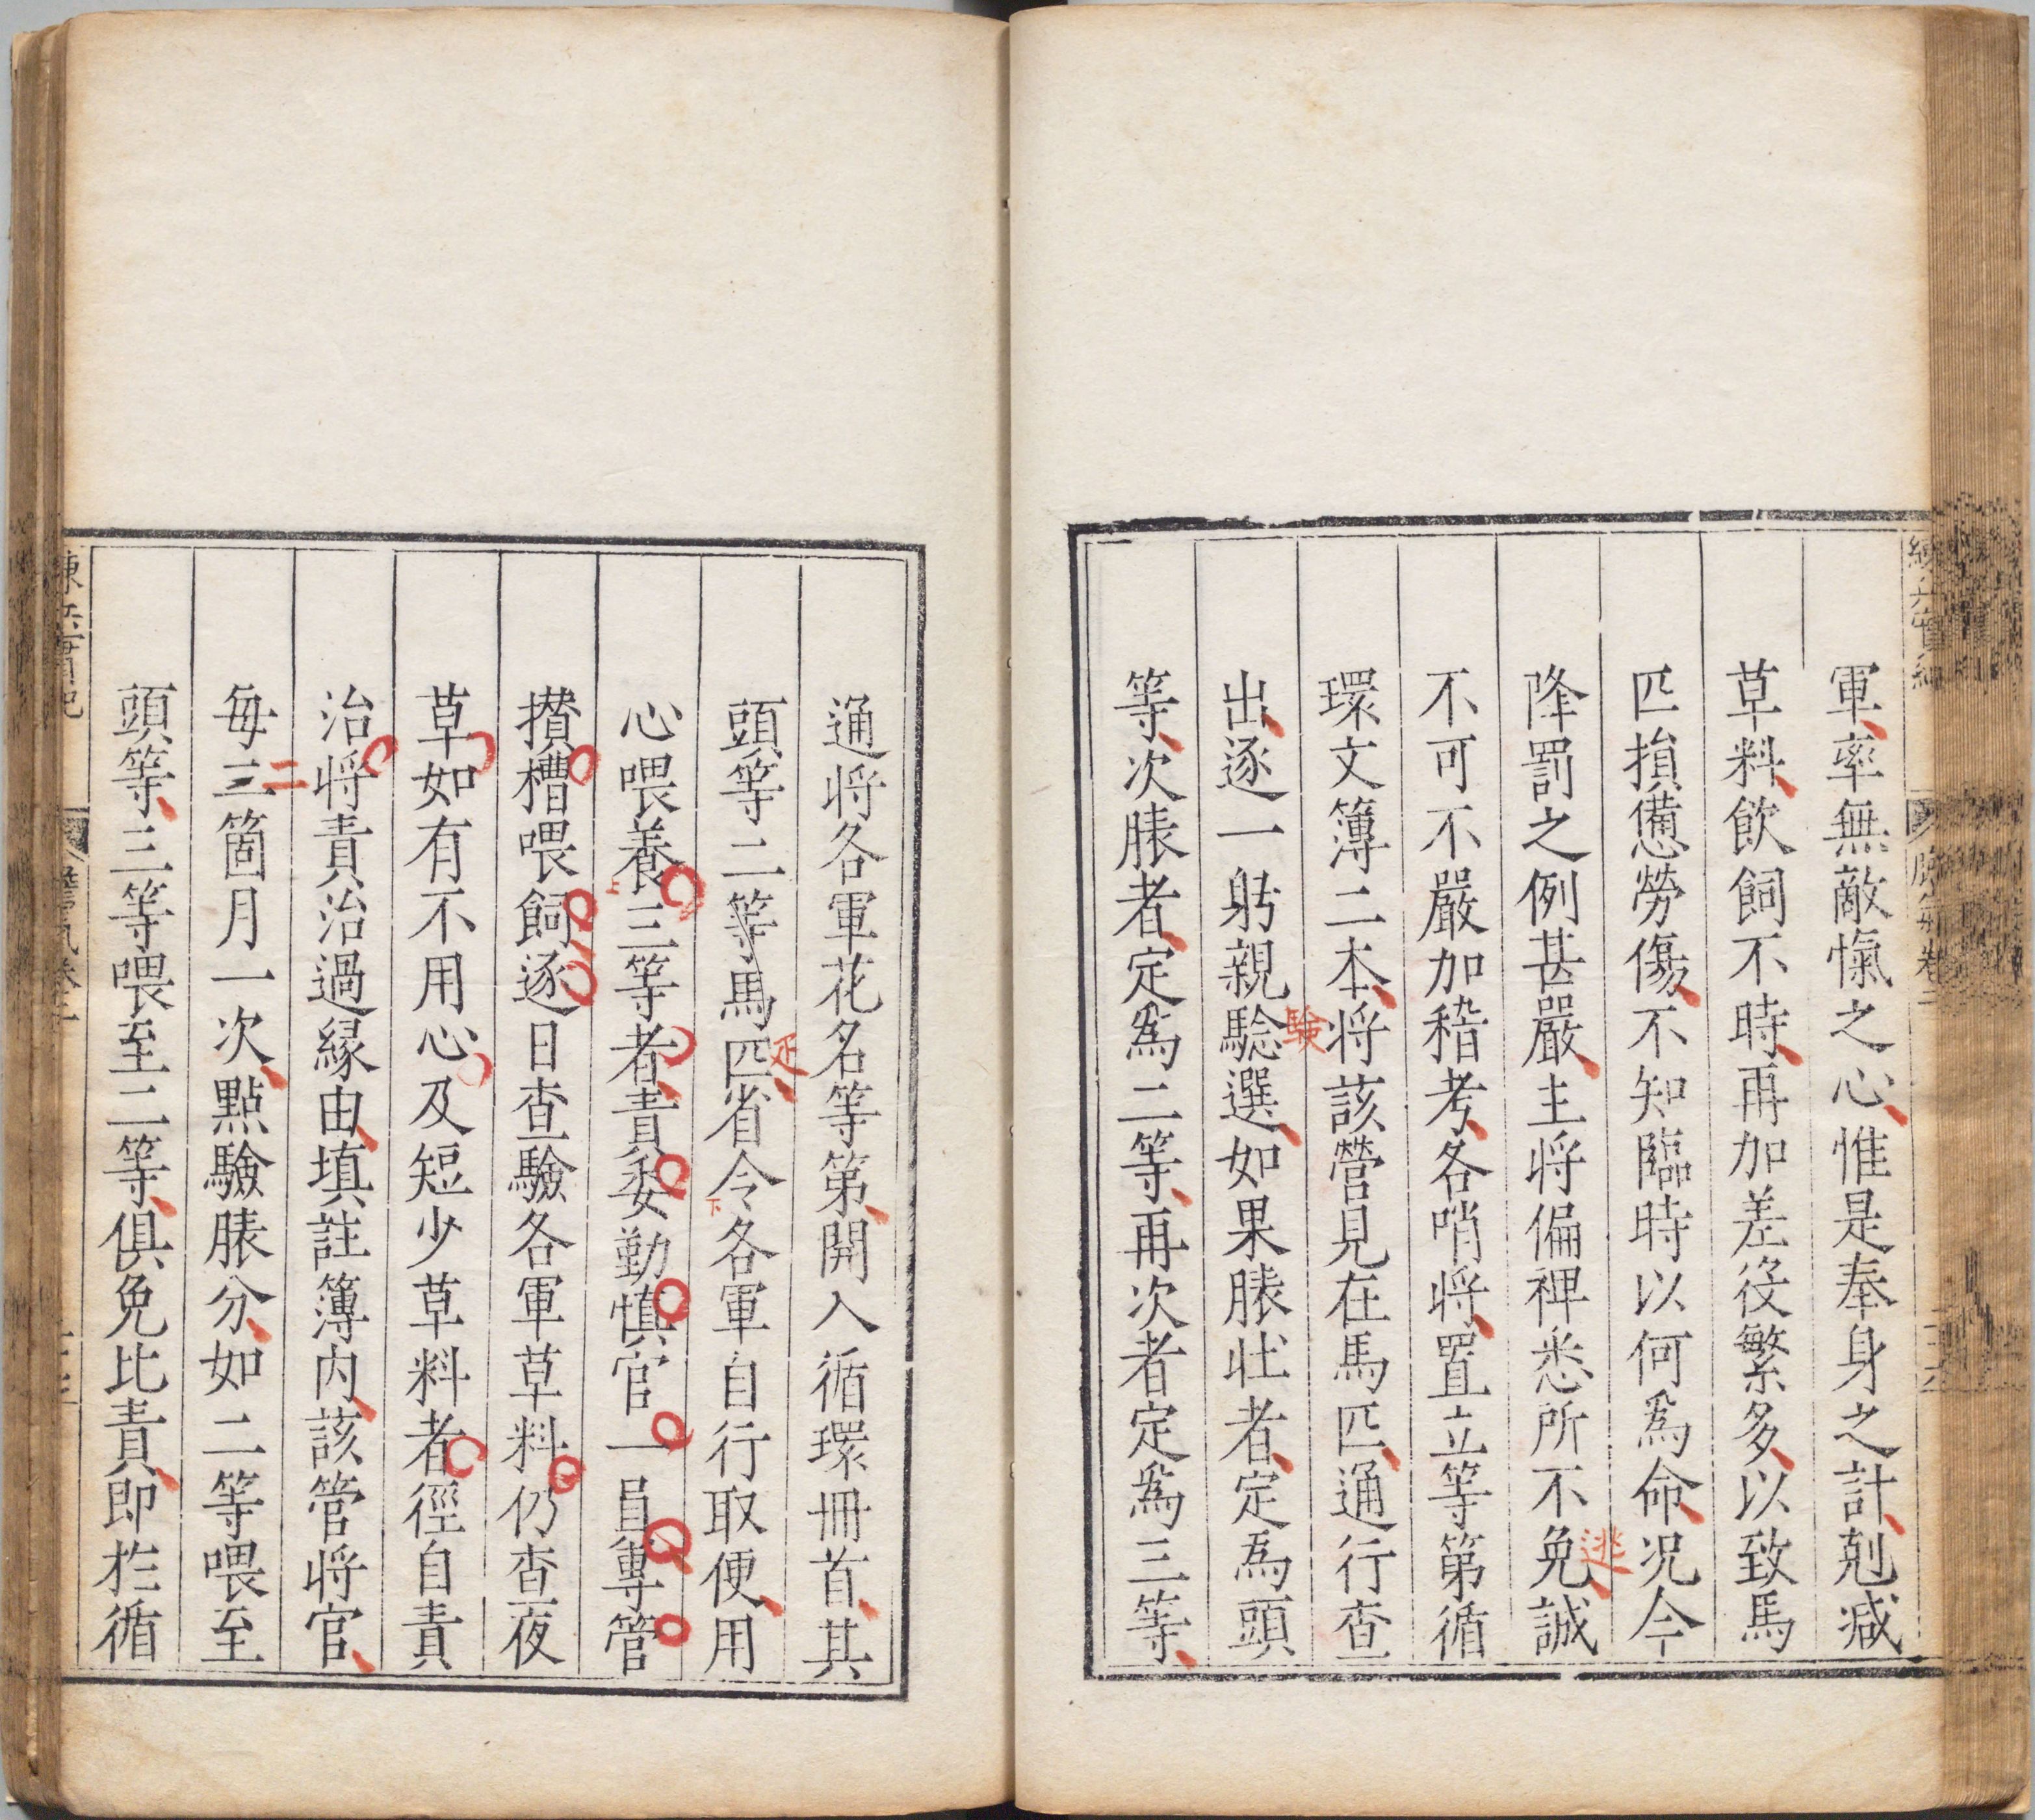 軍率無敵愾之心惟是奉身之計剋减
草料飲飼不時再加差役繁多以致馬
匹損憊勞傷不知臨時以何爲命况今
降罰之例甚嚴主将偏禆悉所不免誠
逃
不可不嚴加稽考各哨将置立等第循
環文簿二本将該營見在馬匹通行查
出逐一躬親騐選如果膘壯者定爲頭
験
等次膘者定爲二等再次者定爲三等
通将各軍花名等第開入循環冊首其
頭等二等馬匹省令各軍自行取便用
疋
下
心喂養三等者責委勤慎官一員專管
上
攅槽喂飼逐日查驗各軍草料仍查夜
草如有不用心及短少草料者徑自責
治将責治過緣由填註簿内該管将官
每三箇月一次點驗膘分如二等喂至
二
頭等三等喂至二等俱免比責即於循